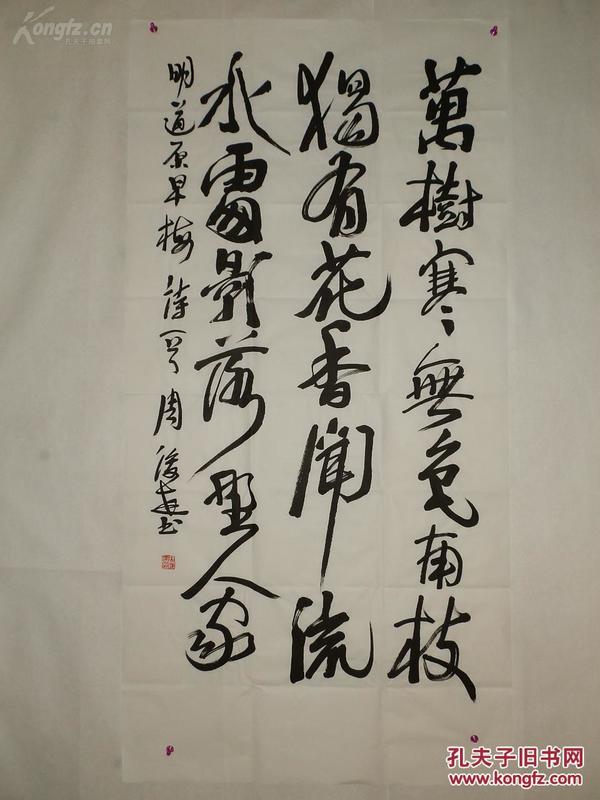 Kongfz.cn
孔夫子旧书网
萬樹寒無色南枝
獨有花香聞流
水處影落野人家
明道原早梅詩一首周書
孔夫子旧书网
www.kongfz.com